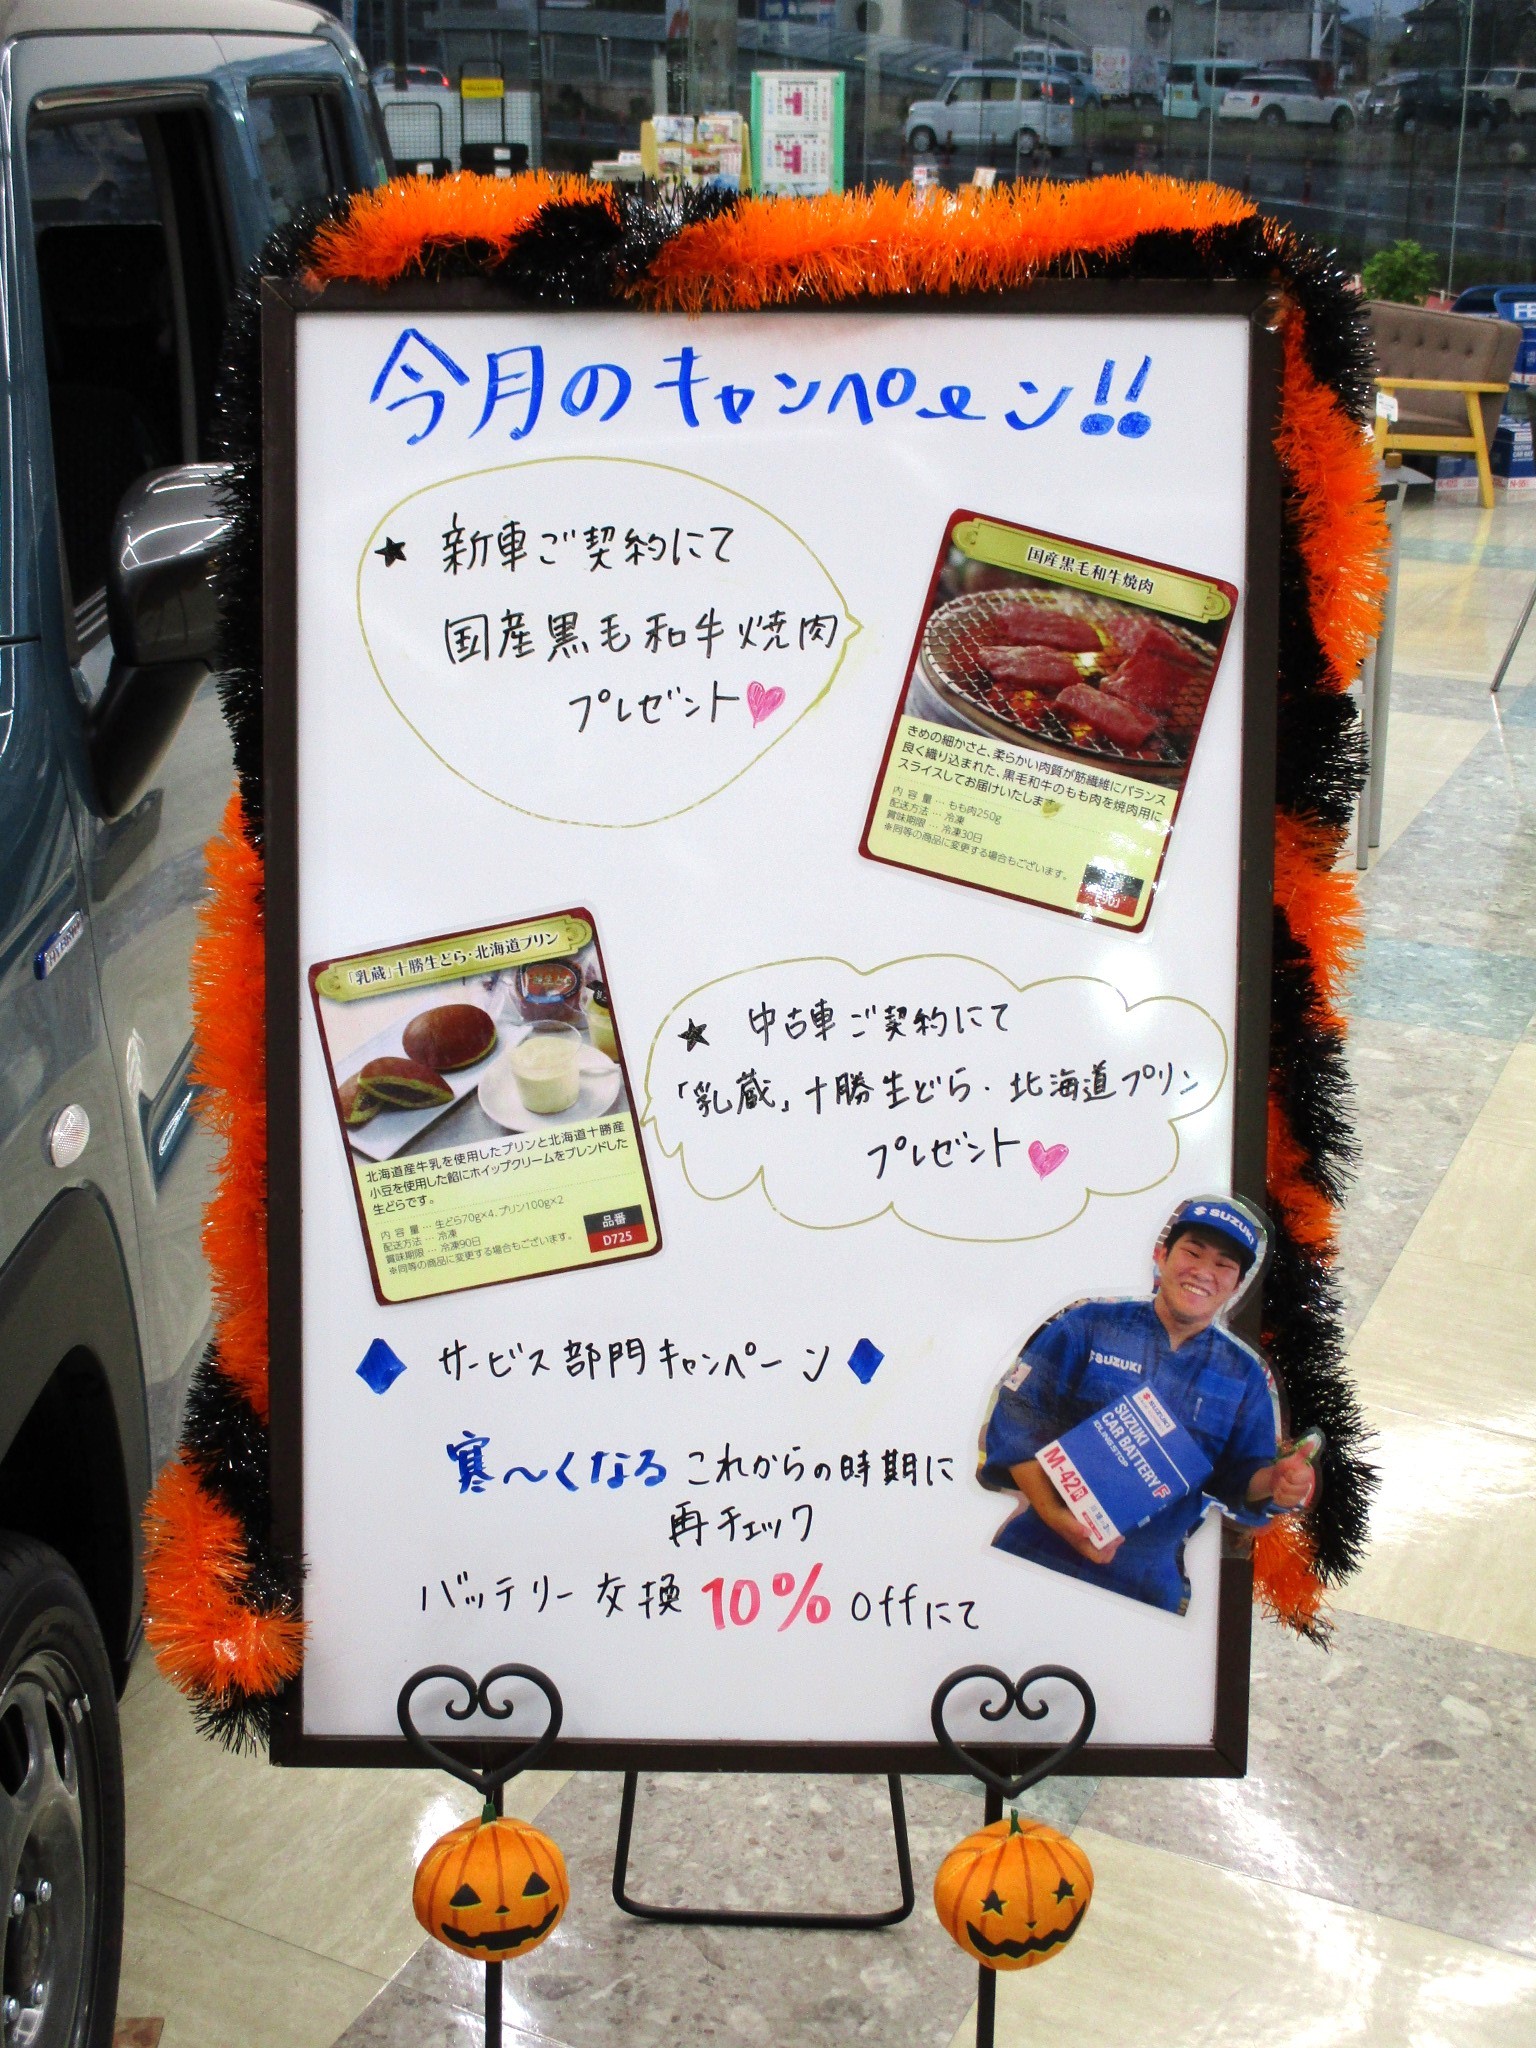 今月のキャンペーン!!
★ 新車ご契約にて
国産黒毛和牛焼肉
プレゼント♥
国産黒毛和牛焼肉
きめの細かさと、柔らかい肉質が筋繊維にバランス
良く織り込まれた、黒毛和牛のもも肉を焼肉用に
スライスしてお届けいたします。
内容量 … もも肉250g
配送方法 … 冷凍
賞味期限 … 冷凍30日
※同等の商品に変更する場合もございます。
「乳蔵」十勝生どら・北海道プリン
北海道産牛乳を使用したプリンと北海道十勝産
小豆を使用した餡にホイップクリームをブレンドした
生どらです。
内容量 … 生どら70g×4、プリン100g×2
配送方法 … 冷凍
賞味期限 … 冷凍90日
※同等の商品に変更する場合もございます。
品番
D725
★ 中古車ご契約にて
「乳蔵」十勝生どら・北海道プリン
プレゼント♥
◆ サービス部門キャンペーン ◆
寒〜くなるこれからの時期に
再チェック
バッテリー交換 10% offにて
SUZUKI
SUZUKI
SUZUKI
SUZUKI
CAR BATTERY
IDLING STOP
M-42R